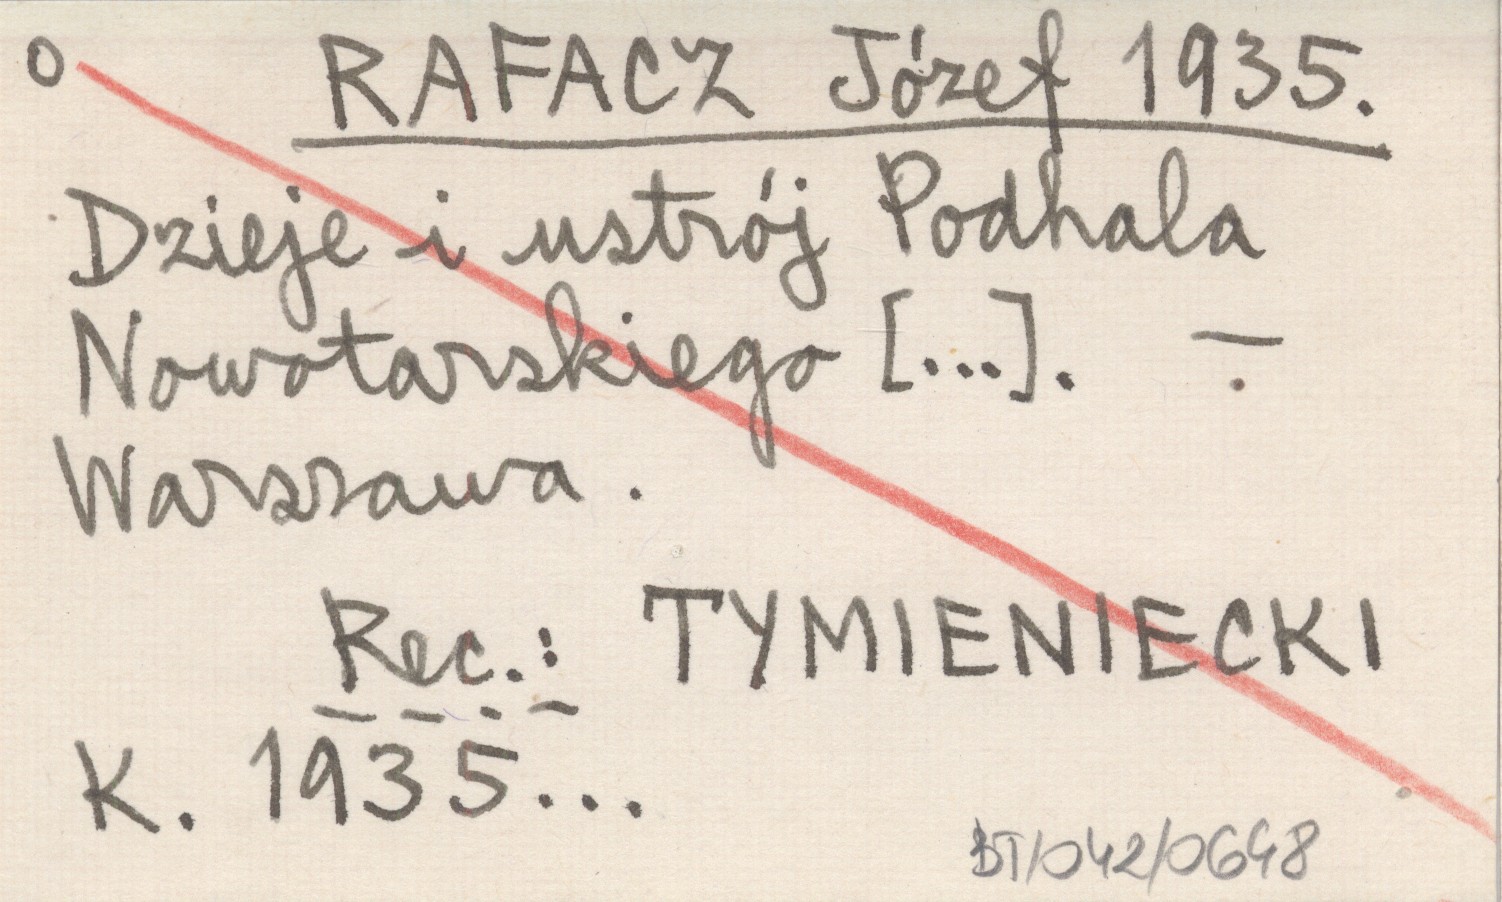 o RAFACZ Józef 1935.
Dzieje i ustrój Podhala
Nowotarskiego [...]. –
Warszawa.
Rec.: TYMIENIECKI
K. 1935...
BT/042/0648